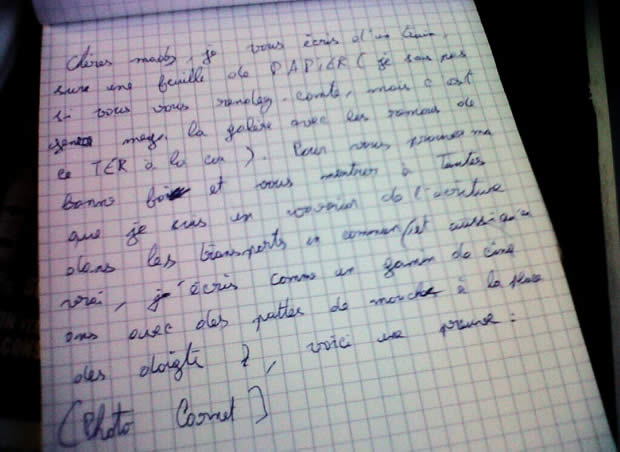 Chères mads, je vous écris d'un train,
sur une feuille de PAPiER (je sais pas
si vous vous rendez compte, mais c'est
mega la galère avec les remous de
ce TER à la con). Pour vous prouver ma
bonne foi et vous montrer à Toutes
que je suis un warrior de l'écriture
dans les transports en commun (et aussi qu'en
vrai, j'écris comme un gamin de cinq
ans avec des pattes de mouche à la place
des doigts), voici une preuve :
(Photo Carnet)